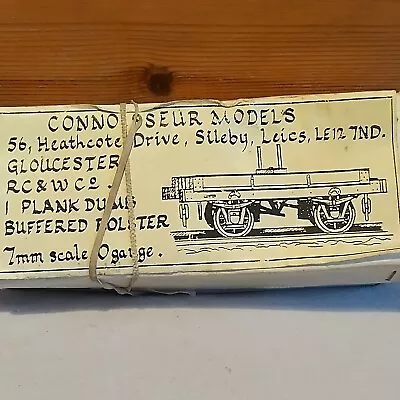 CONNOISEUR MODELS
56, Heathcote Drive, Sileby, Leics, LE12 7ND.
GLOUCESTER
RC & W Co.
1 PLANK DUMB
BUFFERED BOLSTER
7mm scale 0 gauge.